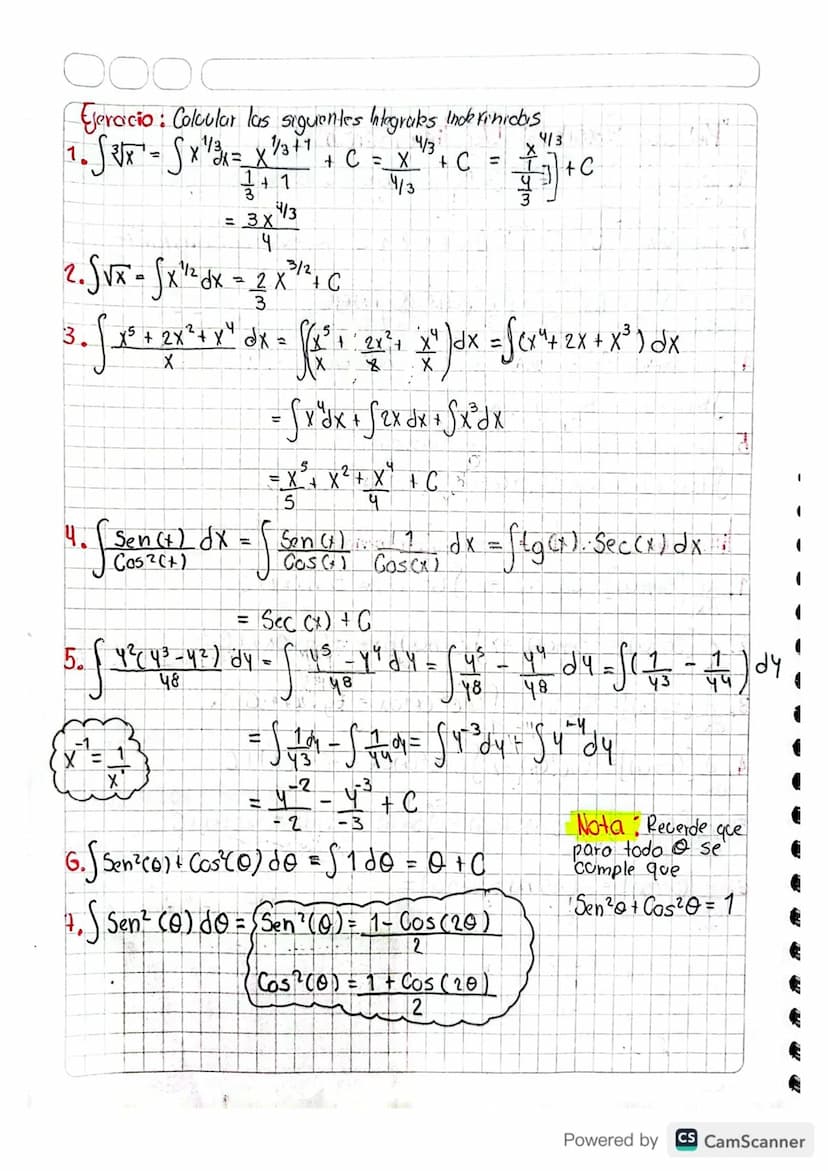 Ejercicio: Calcular las siguientes Integrales Indefinidas
1. ∫ ∛x = ∫ x^1/3 dx = x^(1/3+1) / (1/3 + 1) + C = x^4/3 / 4/3 + C = [x^4/3 / 1 / 4/3] + C
= 3x^4/3 / 4
2. ∫ √x = ∫ x^1/2 dx = 2/3 x^3/2 + C
3. ∫ (x⁵ + 2x² + x⁴) / x dx = ∫ (x⁵/x + 2x²/x + x⁴/x) dx = ∫ (x⁴ + 2x + x³) dx
= ∫ x⁴ dx + ∫ 2x dx + ∫ x³ dx
= x⁵/5 + x² + x⁴/4 + C
4. ∫ Sen(t) / Cos²(t) dx = ∫ Sen(t) / Cos(t) · 1 / Cos(x) dx = ∫ tg(x) · Sec(x) dx
= Sec(x) + C
5. ∫ y²(y³ - y²) / y8 dy = ∫ (y⁵ - y⁴) / y8 dy = ∫ y⁵/y8 - y⁴/y8 dy = ∫ (1/y3 - 1/y4) dy
= ∫ 1/y3 dy - ∫ 1/y4 dy = ∫ y⁻³ dy + ∫ y⁻⁴ dy
x⁻¹ = 1/x
= y⁻²/-2 - y⁻³/-3 + C
Nota: Recuerde que
para todo θ se
cumple que
Sen²θ + Cos²θ = 1
6. ∫ Sen²(θ) + Cos²(θ) dθ = ∫ 1 dθ = θ + C
7. ∫ Sen²(θ) dθ = Sen²(θ) = 1 - Cos(2θ) / 2
Cos²(θ) = 1 + Cos(2θ) / 2
Powered by CS CamScanner